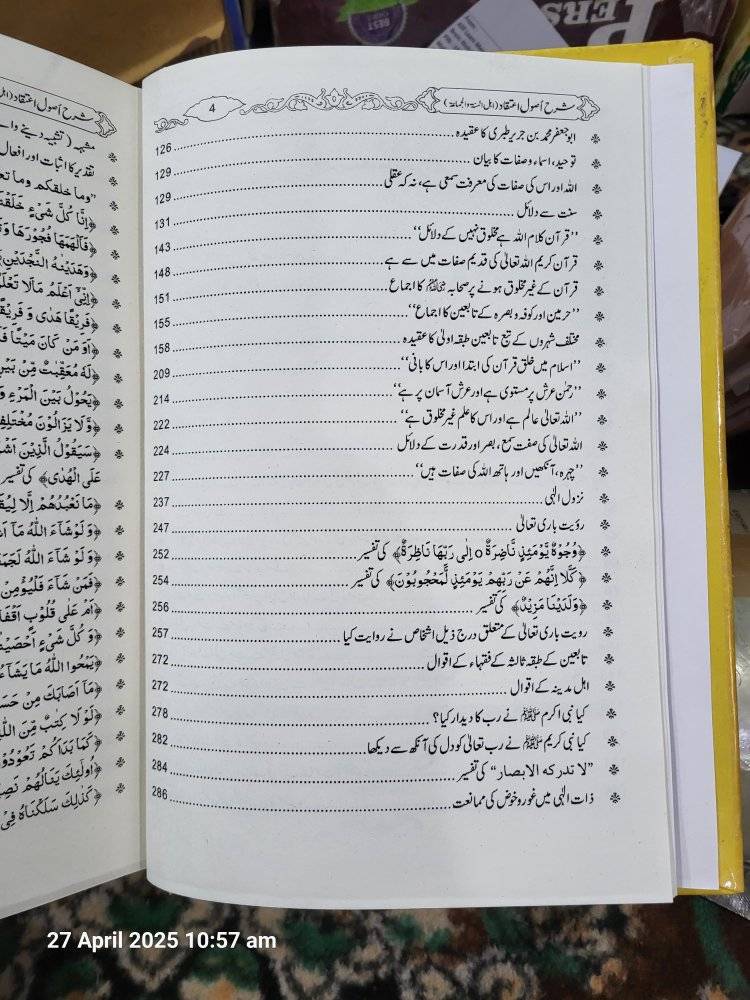 PERS
BEST
شرح أصول اعتقاد (اہل السنۃ والجماعۃ)
4
ابو جعفر محمد بن جریر طبری کا عقیدہ 126
توحید، اسماء وصفات کا بیان 129
اللہ اور اس کی صفات کی معرفت سمعی ہے، نہ کہ عقلی 129
سنت سے دلائل 131
’’قرآن کلام اللہ ہے مخلوق نہیں کے دلائل‘‘ 143
قرآن کریم اللہ تعالیٰ کی قدیم صفات میں سے ہے 148
قرآن کے غیر مخلوق ہونے پر صحابہ کا اجماع 151
’’حرمین اور کوفہ و بصرہ کے تابعین کا اجماع‘‘ 155
مختلف شہروں کے تبع تابعین طبقہ اولیٰ کا عقیدہ 158
’’اسلام میں خلق قرآن کی ابتدا اور اس کا بانی‘‘ 209
’’رحمٰن عرش پر مستوی ہے اور عرش آسمان پر ہے‘‘ 214
’’اللہ تعالیٰ عالم ہے اور اس کا علم غیر مخلوق ہے‘‘ 222
اللہ تعالیٰ کی صفت سمع، بصر اور قدرت کے دلائل 224
’’چہرہ، آنکھیں اور ہاتھ اللہ کی صفات ہیں‘‘ 227
نزول الٰہی 237
رؤیت باری تعالیٰ 247
﴿وُجُوْهٌ يَّوْمَئِذٍ نَّاضِرَةٌ o اِلٰى رَبِّهَا نَاظِرَةٌ﴾ کی تفسیر 252
﴿كَلَّا اِنَّهُمْ عَنْ رَّبِّهِمْ يَوْمَئِذٍ لَّمَحْجُوْبُوْنَ﴾ کی تفسیر 254
﴿وَلَدَيْنَا مَزِيْدٌ﴾ کی تفسیر 256
رویت باری تعالیٰ کے متعلق درج ذیل اشخاص نے روایت کیا 257
تابعین کے طبقہ ثالثہ کے فقہاء کے اقوال 272
اہل مدینہ کے اقوال 272
کیا نبی اکرم ﷺ نے رب کا دیدار کیا؟ 278
کیا نبی کریم ﷺ نے رب تعالیٰ کو دل کی آنکھ سے دیکھا 282
”لا تدرکه الابصار“ کی تفسیر 284
ذات الٰہی میں غور و خوض کی ممانعت 286
شرح أصول اعتقاد (اہل
مشبہہ (تشبیہ دینے والے
تقدیر کا اثبات اور افعال
”وما خلقكم وما
﴿اِنَّا كُلَّ شَيْءٍ خَلَقْنٰهُ
﴿فَاَلْهَمَهَا فُجُوْرَهَا وَ
﴿وَهَدَيْنٰهُ النَّجْدَيْنِ﴾
﴿اِنِّيْٓ اَعْلَمُ مَا لَا
﴿فَرِيْقًا هَدٰى وَ فَرِيْقًا
﴿اَوَ مَنْ كَانَ مَيْتًا
﴿لَهٗ مُعَقِّبٰتٌ مِّنْۢ بَيْنِ
﴿يَحُوْلُ بَيْنَ الْمَرْءِ وَ
﴿وَّلَا يَزَالُوْنَ مُخْتَلِفِيْنَ
﴿سَيَقُوْلُ الَّذِيْنَ
عَلَى الْهُدٰى﴾ کی تفسیر
﴿مَا نَعْبُدُهُمْ اِلَّا
﴿وَ لَوْ شَآءَ اللّٰهُ مَآ
﴿وَ لَوْ شَآءَ اللّٰهُ
﴿فَمَنْ شَآءَ فَلْيُؤْمِنْ
﴿اَمْ عَلٰى قُلُوْبٍ
﴿وَ كُلَّ شَيْءٍ
﴿يَمْحُوا اللّٰهُ مَا يَشَآءُ
﴿مَآ اَصَابَكَ مِنْ
﴿لَوْ لَا كِتٰبٌ مِّنَ
﴿كَمَا بَدَاَكُمْ تَعُوْدُوْنَ
﴿اُولٰٓئِكَ يَنَالُهُمْ
﴿كَذٰلِكَ سَلَكْنَاهُ فِيْ
27 April 2025 10:57 am